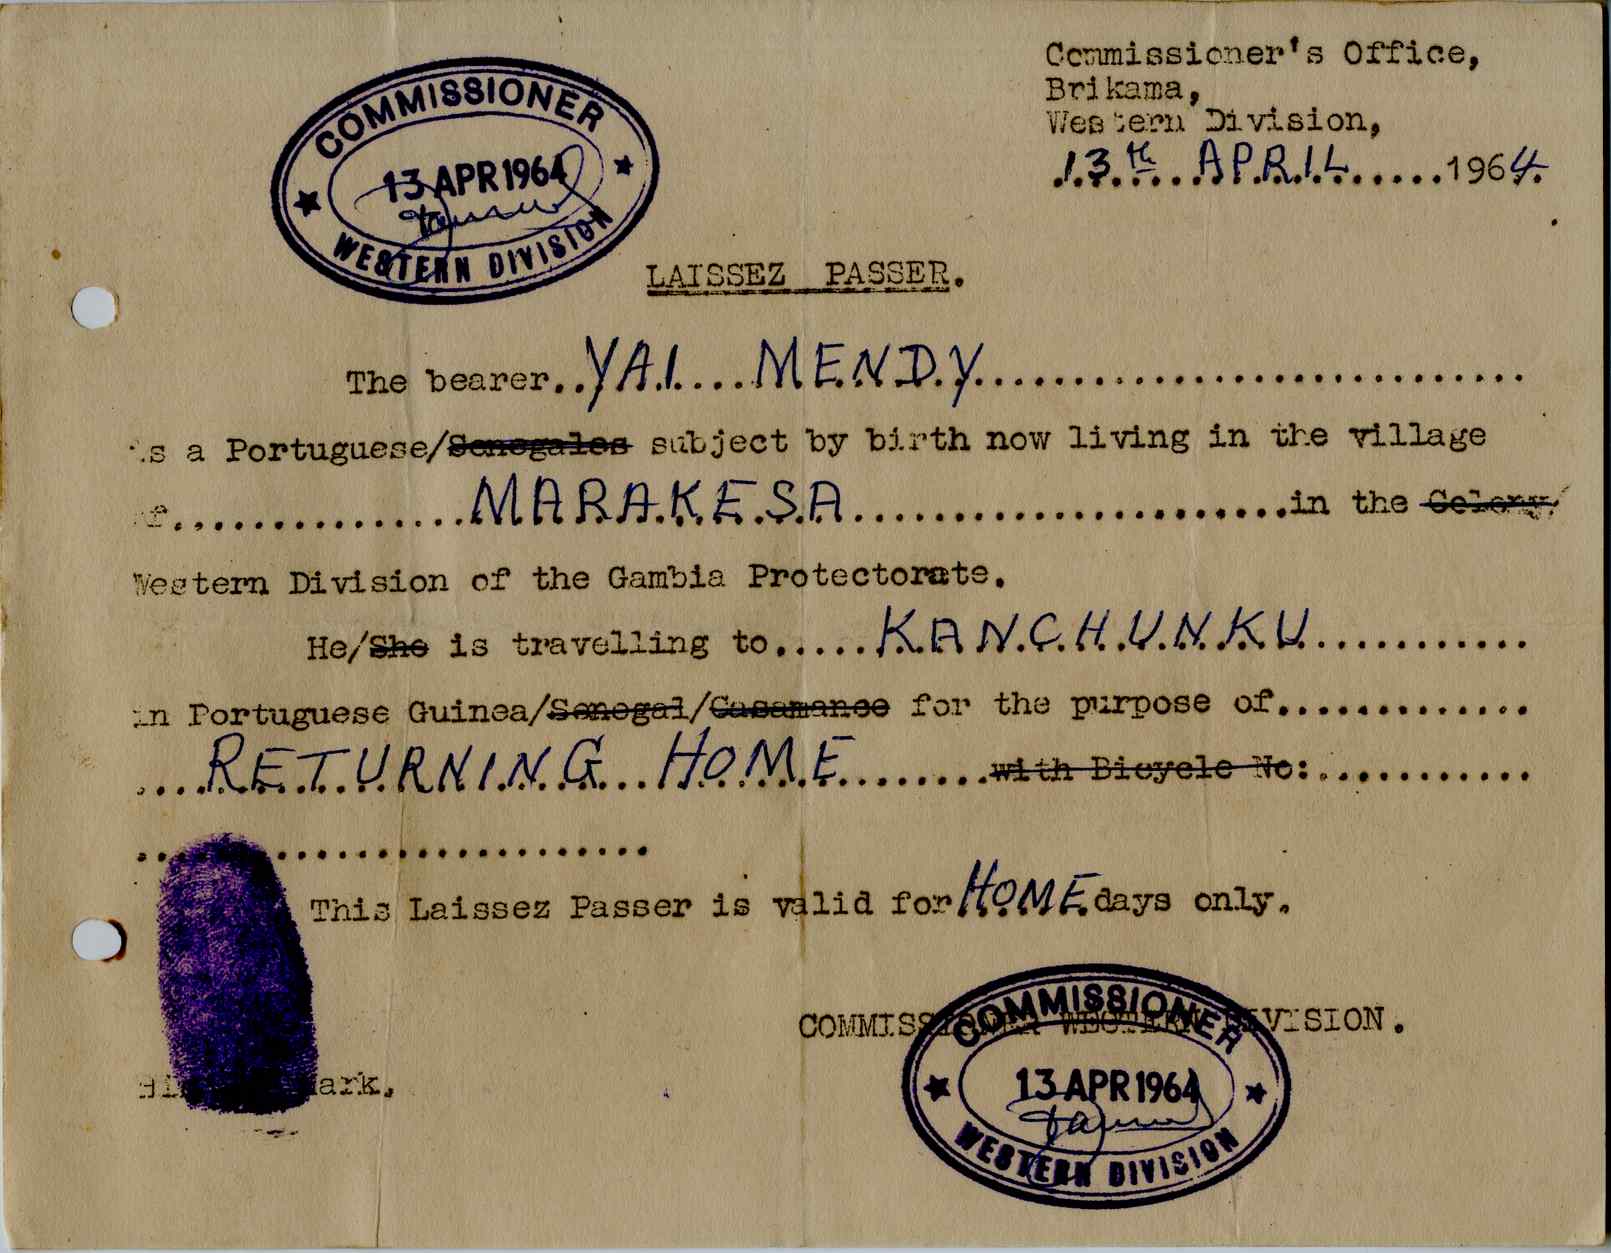 Commissioner's Office,
Brikama,
Western Division,
13th APRIL 1964.
COMMISSIONER
13 APR 1964
WESTERN DIVISION
LAISSEZ PASSER.
The bearer..YAI....MENDY..............................
is a Portuguese/Senegales subject by birth now living in the village
of................MARAKESA........................in the Colony/
Western Division of the Gambia Protectorate.
He/She is travelling to.....KANCHUNKU............
in Portuguese Guinea/Senegal/Casamance for the purpose of.............
....RETURNING...HOME........with Bicycle No:............
..........................
This Laissez Passer is valid for HOME days only.
COMMISSIONER WESTERN DIVISION.
COMMISSIONER
13 APR 1964
WESTERN DIVISION
ark.